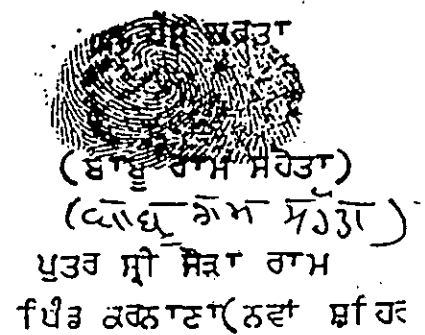 ਸਰੋਤਾ
(ਬਾਬੂ ਰਾਮ ਸਰੋਤਾ)
(ਬਾਬੂ ਰਾਮ ਸਰੋਤਾ)
ਪੁਤਰ ਸ੍ਰੀ ਸੋੜਾ ਰਾਮ
ਪਿੰਡ ਕਰਨਾਣਾ(ਨਵਾਂ ਸ਼ਹਿਰ